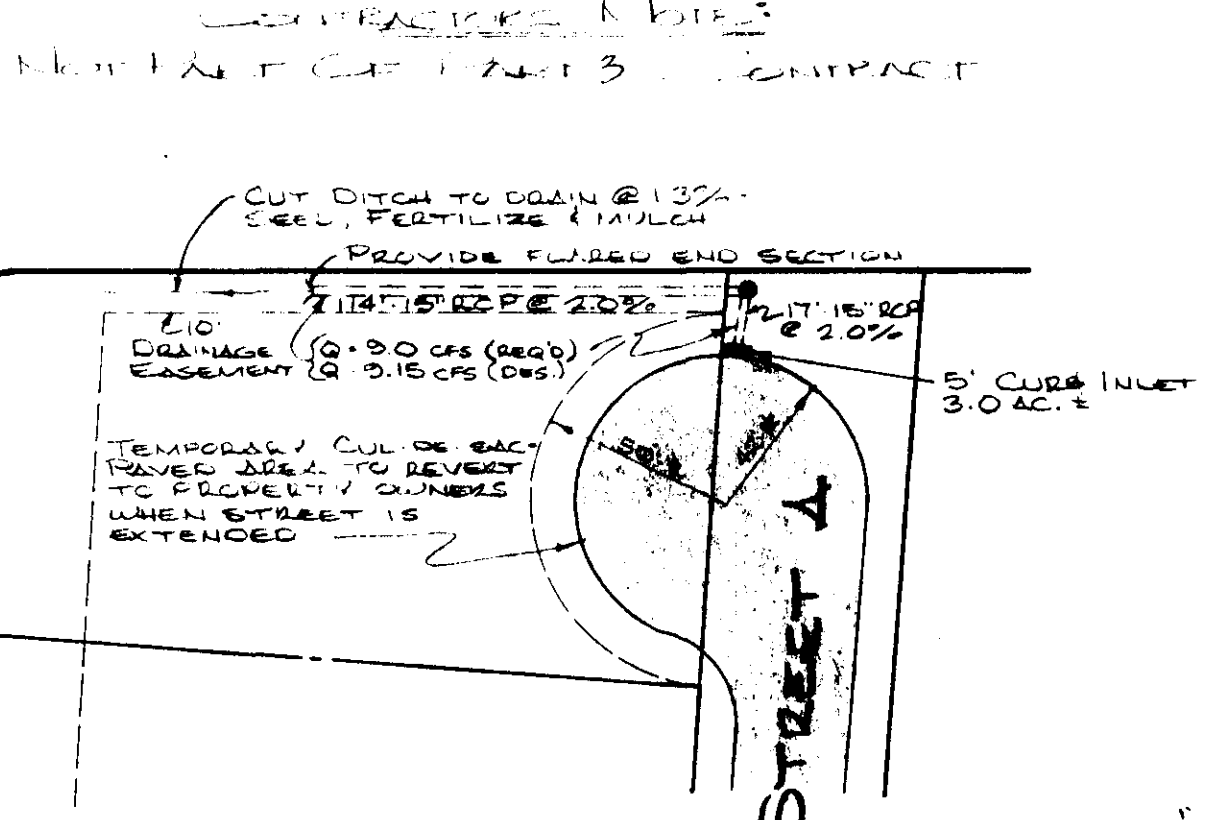 CONTRACTORS NOTE:
NOT PART OF PART 3 CONTRACT
CUT DITCH TO DRAIN @ 1.3%
SEED, FERTILIZE & MULCH
PROVIDE FLARED END SECTION
114' 15" RCP @ 2.0%
17' 15" RCP
@ 2.0%
10'
DRAINAGE
EASEMENT
Q = 9.0 CFS (REQ'D)
Q = 9.15 CFS (DES.)
5' CURB INLET
3.0 AC. ±
TEMPORARY CUL-DE-SAC-
PAVED AREA TO REVERT
TO PROPERTY OWNERS
WHEN STREET IS
EXTENDED
50'
STREET A